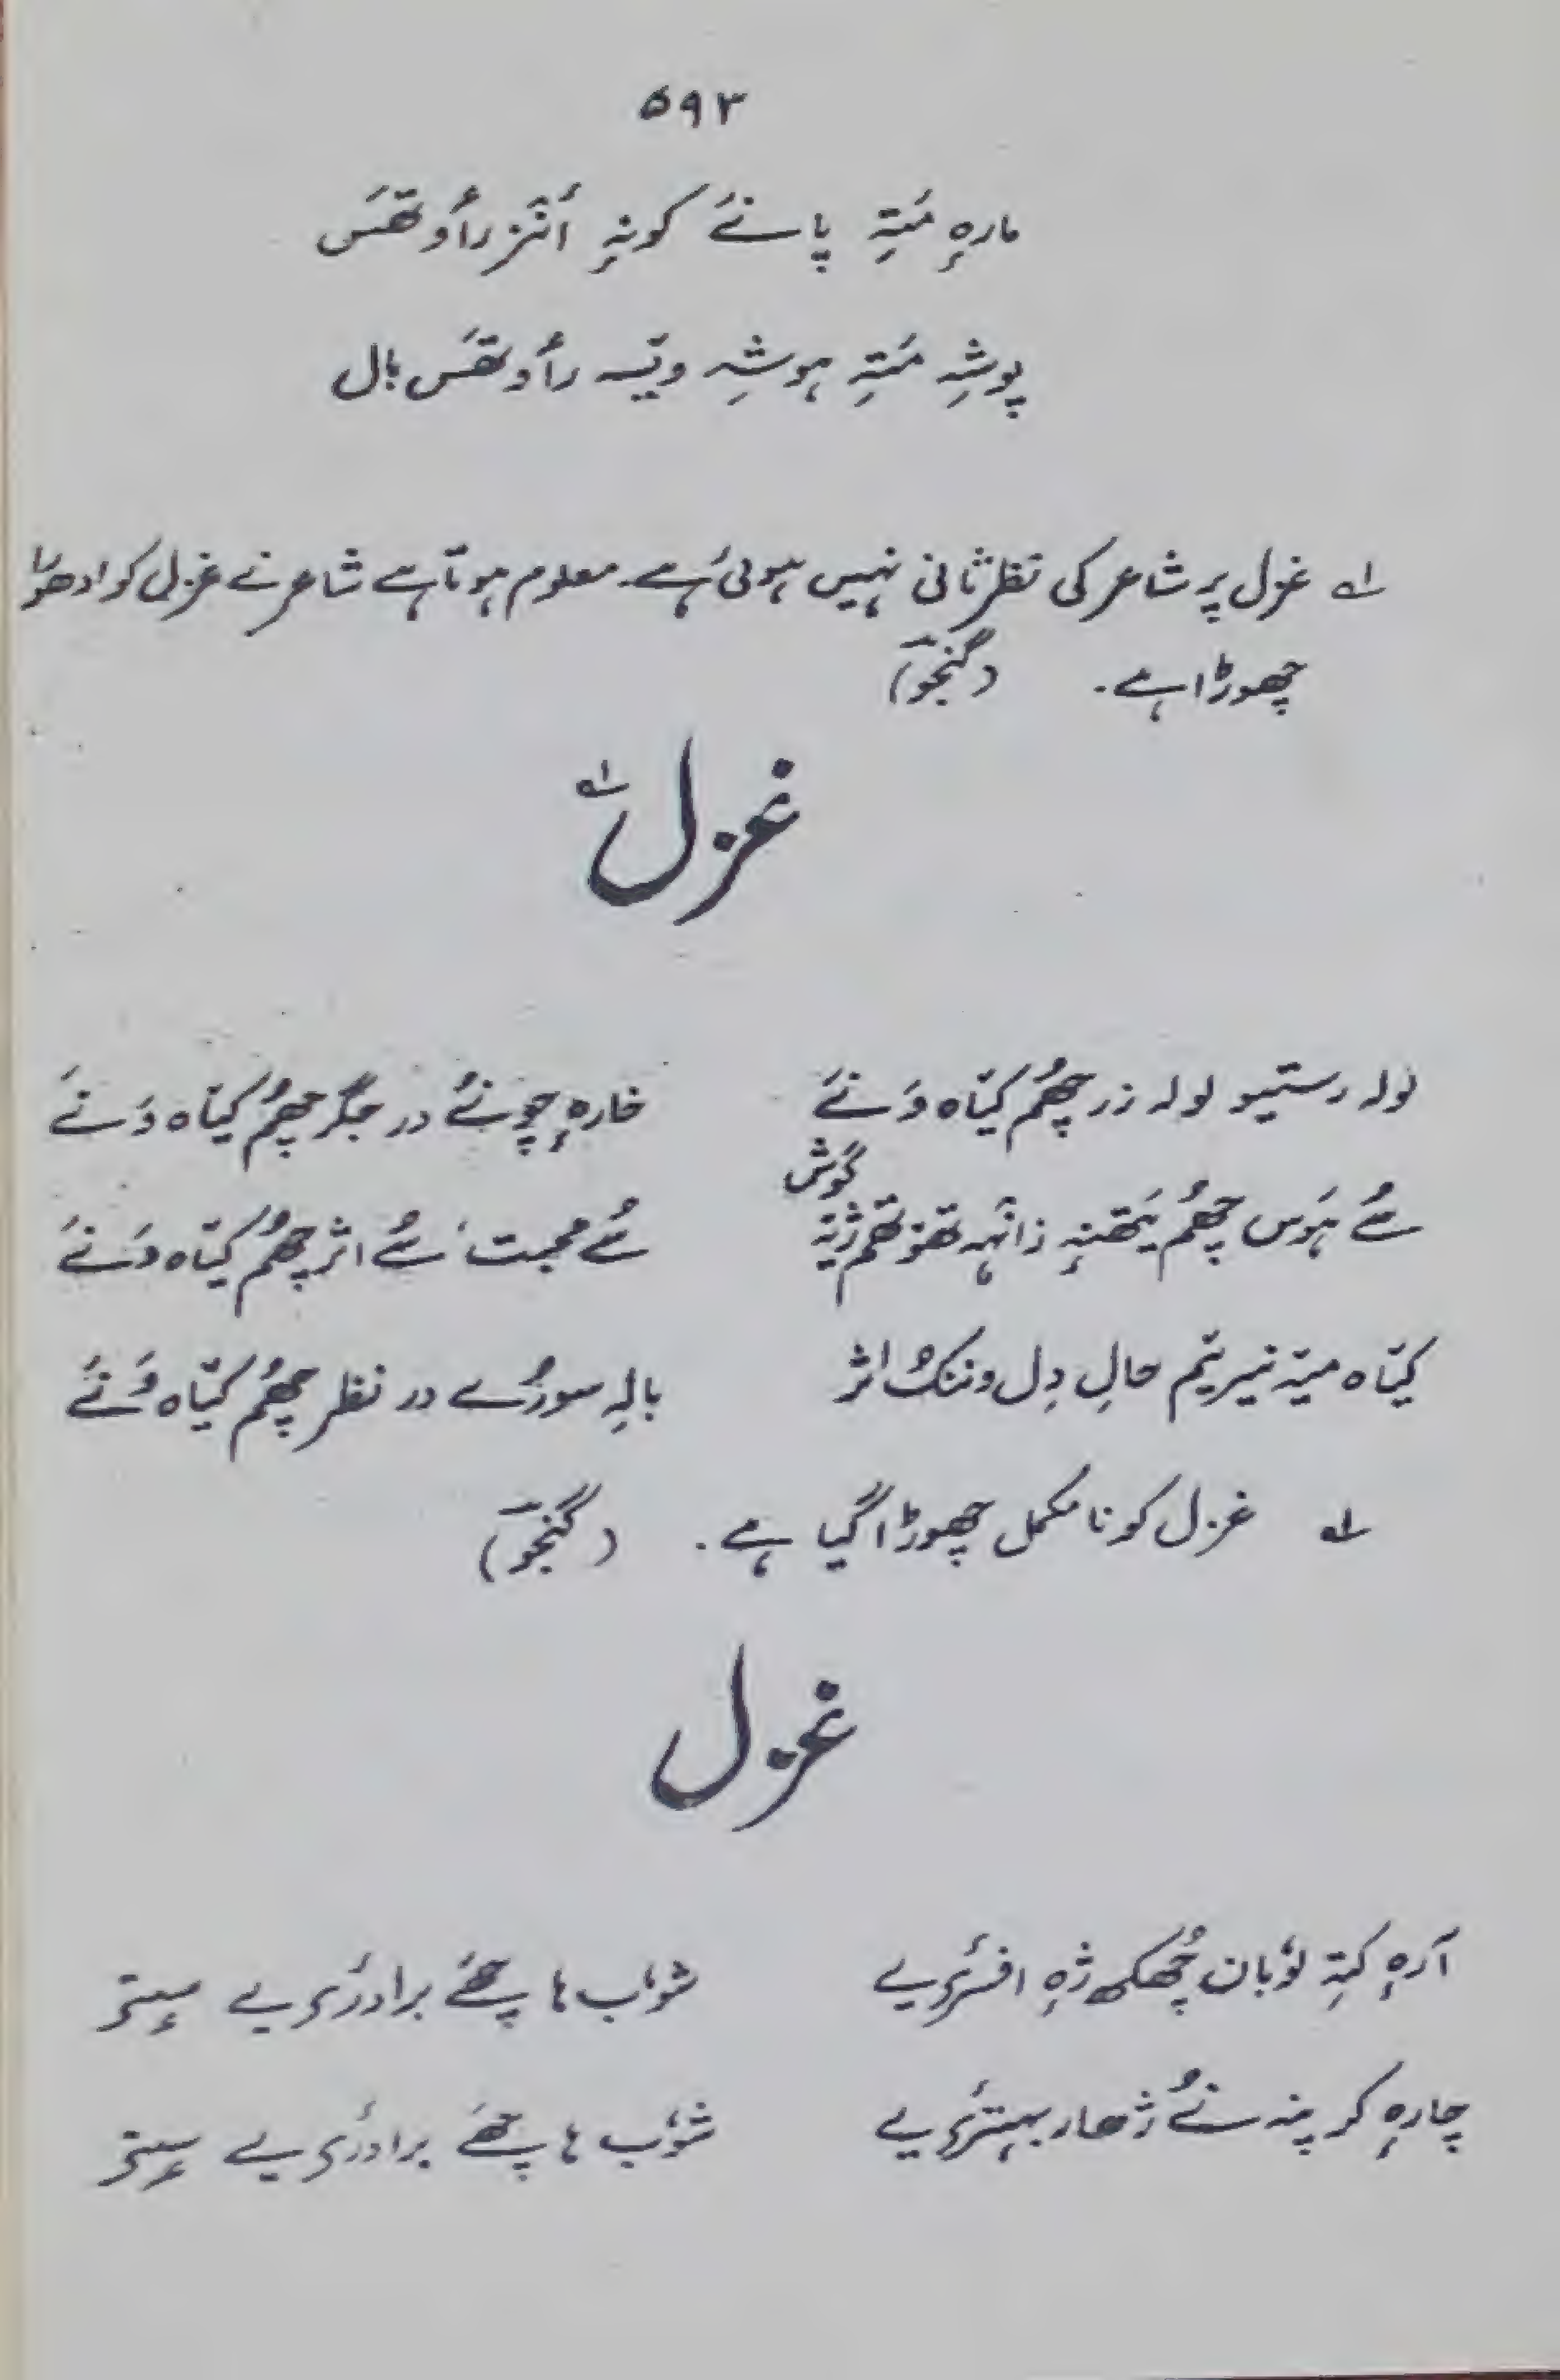 ۵۹۳
مارہٕ مَتہِ پانَے کونہٕ اَنٛز رٲوتھَس
پوشہِ مَتہِ ہوشہِ ویتہ رٲوتھَس بال
؎۱ غزل پر شاعر کی نظر ثانی نہیں ہوئی ہے۔ معلوم ہوتا ہے شاعر نے غزل کو ادھورا
چھوڑا ہے۔ (گنجو)
غزل ؎۱
لولہ رستیو لولہ زر چھُم کیَاہ وَنَے خارہٕ چونُے در جگر چھُم کیَاہ وَنَے
گوش
سُے ہَوس چھُم یَتھنہٕ زانہہ تھوتھم ژیٚہ سُے محبت سُے اثر چھُم کیَاہ وَنَے
کیَاہ میٚہ نیریم حالِ دِل ونُنک اثر بالہِ سورُے در نظر چھُم کیَاہ وَنَے
؎۱ غزل کو نامکمل چھوڑا گیا ہے۔ (گنجو)
غزل
آرہٕ کَتہِ لوٗبان چھُکھ ژہٕ افسرٔی یے شوٗب ہا چھَے برادرٔی یے سٟتۍ
چارہٕ کر پنہ نُے ژھار بہترٔی یے شوٗب ہا چھَے برادرٔی یے سٟتۍ